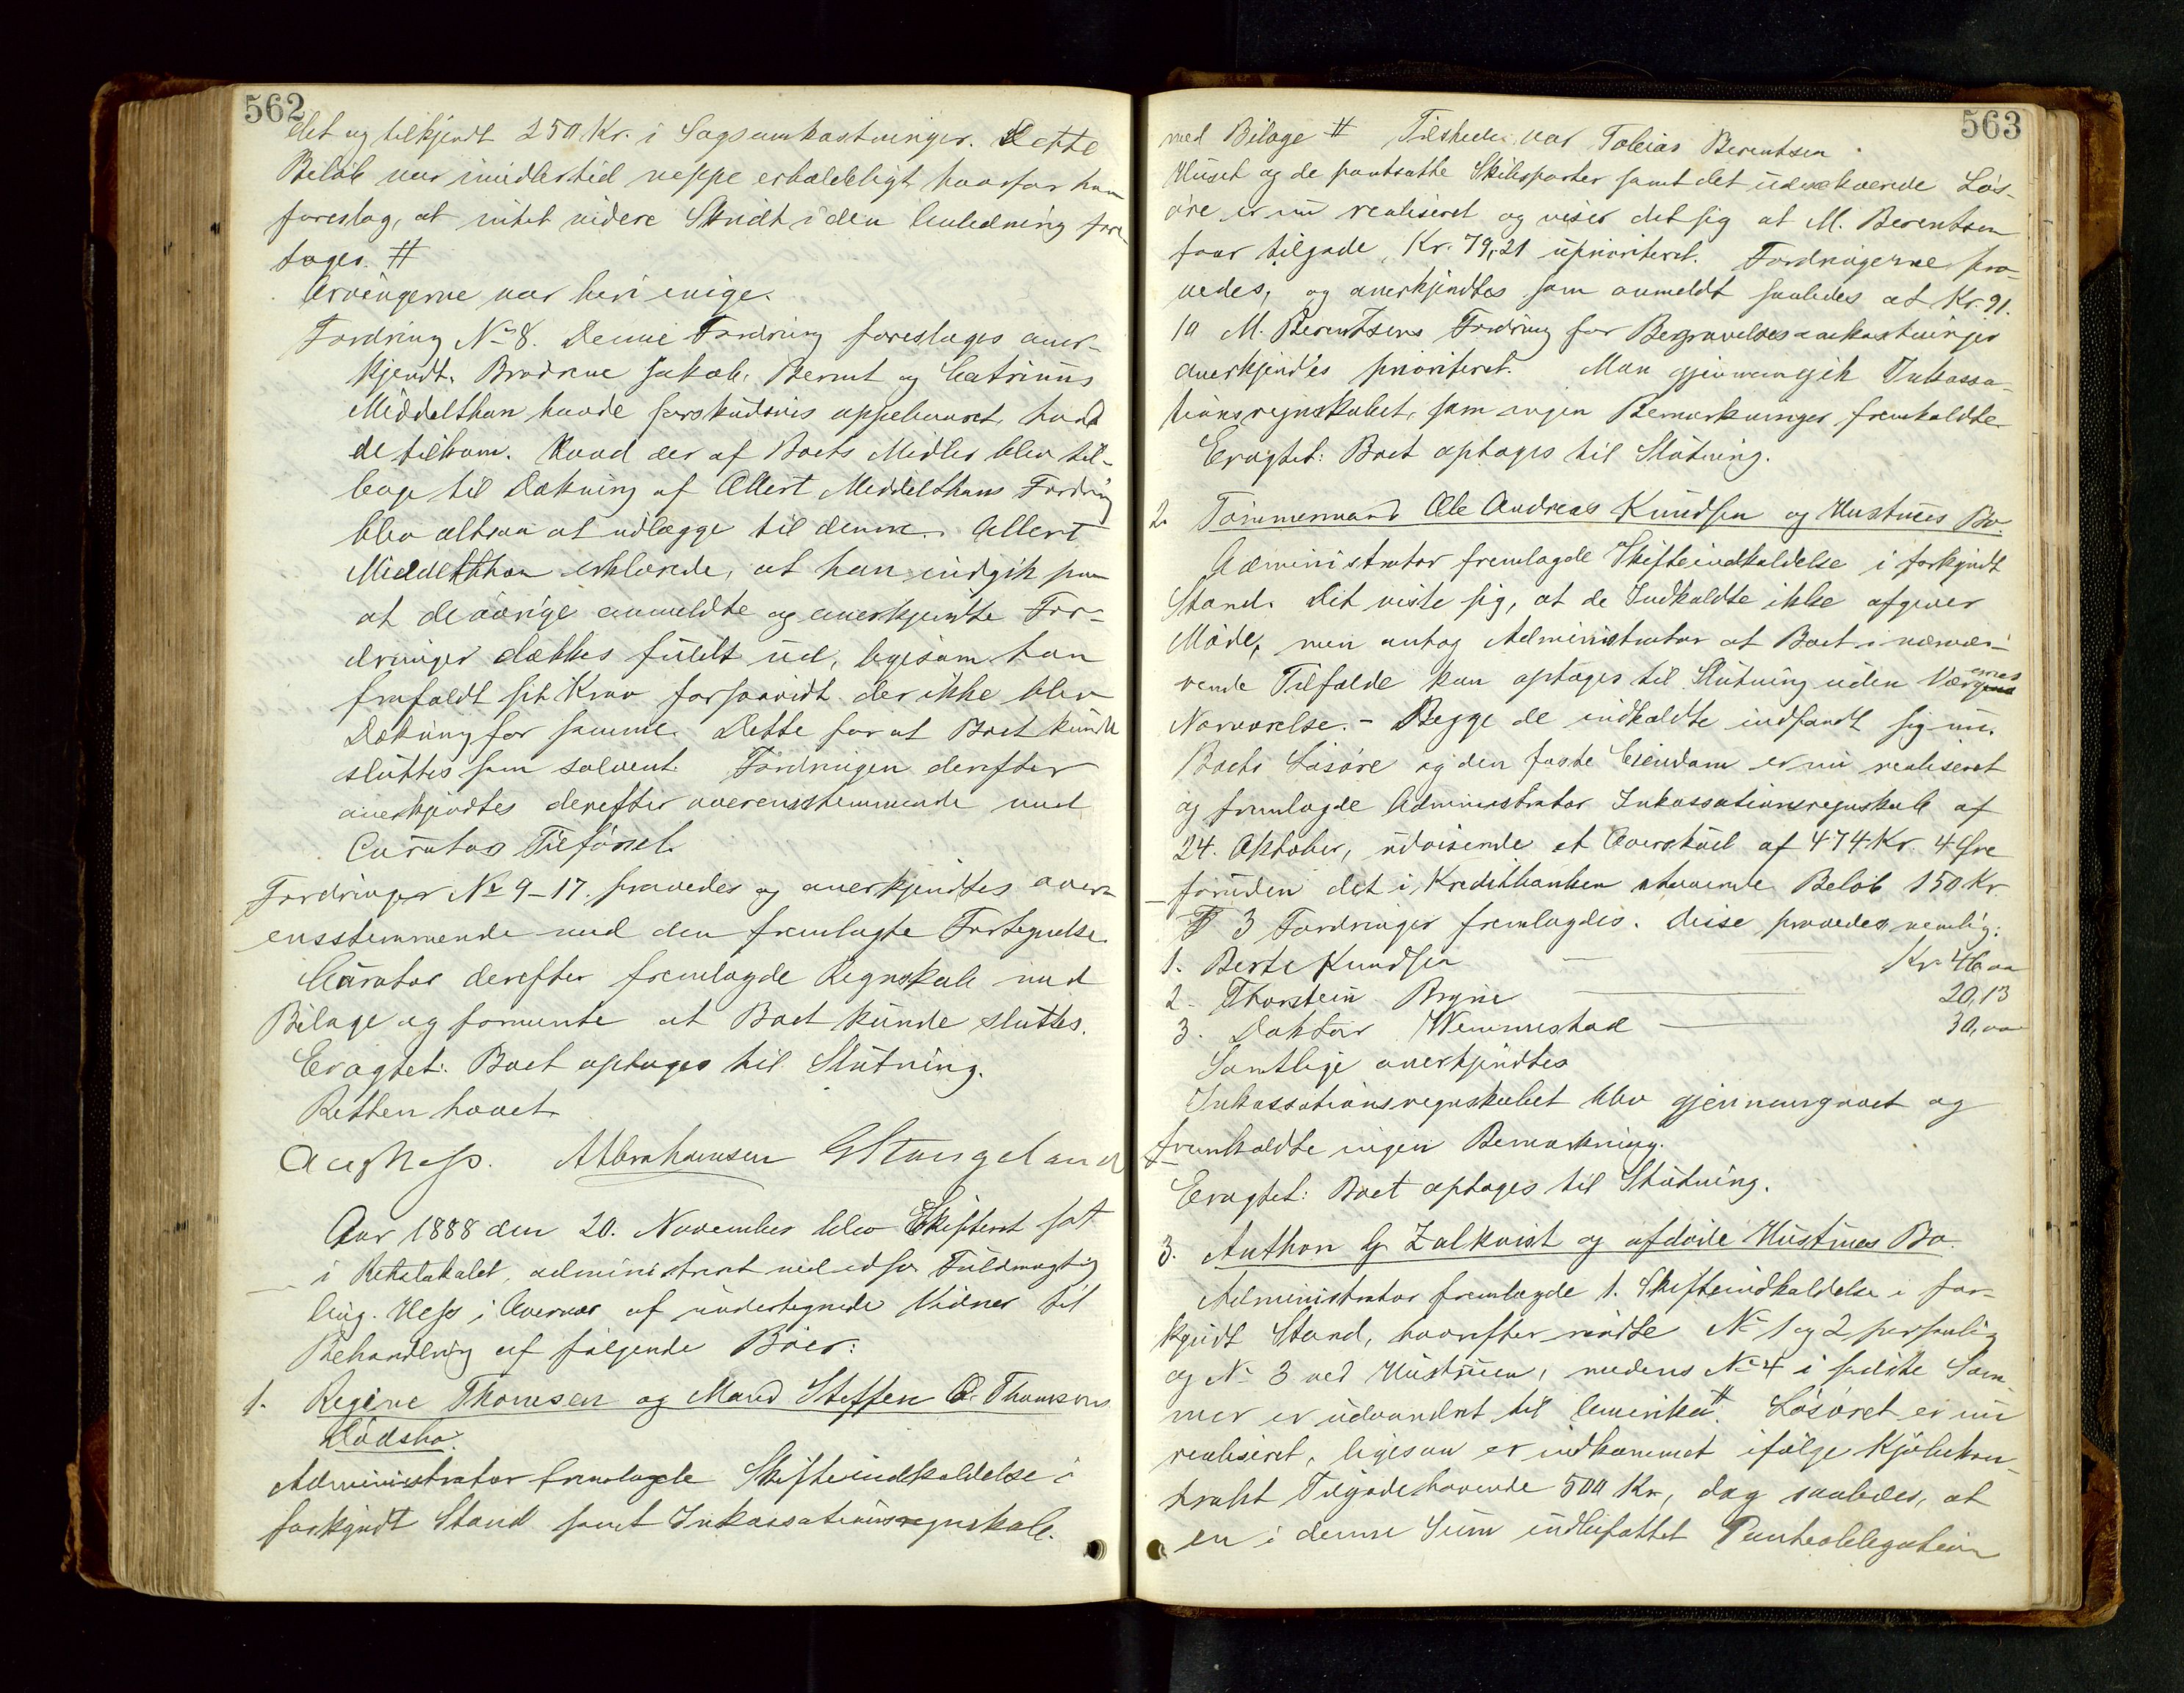 562
det og tilkjendt 250 Kr. i Sagsomkostninger. Dette
Beløb var imidlertid neppe erholdeligt hvorfor han
foreslog, at intet videre Skridt i den Anledning fore-
tages. #
Arvingerne var heri enige.
Fordring No 8. Denne Fordring foreslages aner-
kjendt. Brødrene Jakob, Bernt og Catrinus
Middelthon havde forskudsvis oppebaaret, hvad
de tilkom. Hvad der af Boets Midler blev til-
bage til Dækning af Ellert Middelthons Fordring
blev altsaa at udlægge til denne. Ellert
Middelthon erklærede, at han indgik paa
at de øvrige anmeldte og anerkjendte For-
dringer dækkes fuldt ud, ligesom han
frafaldt sit Krav forsaavidt der ikke blev
Dækning for samme. Dette for at Boet kunde
sluttes som solvent. Fordringen derefter
anerkjendtes derefter overensstemmende med
Curators Tilførsel.
Fordringer No 9-17. prøvedes og anerkjendtes over-
ensstemmende med den fremlagte Fortegnelse.
Curator derefter fremlagde Regnskab med
Bilage og formente at Boet kunde sluttes.
Eragtet: Boet optages til Slutning.
Retten hævet.
Aug Hess. A Abrahamsen G Stangeland
Aar 1888 den 20. November blev Skifteret sat
i Retslokalet, administreret ved edsv. Fuldmægtig
Aug. Hess i Overvær af undertegnede Vidner til
Behandling af følgende Boer:
1. Regine Thomsen og Mand Steffen O. Thomsens
Dødsbo.
Administrator fremlagde Skifteindkaldelse i
forkyndt Stand samt Inkassationsregnskab.
563
med Bilage # Tilstede var Tobias Berentsen
Huset og de pantsatte Skibsparter samt det udestaaende Løs-
øre er nu realiseret og viser det sig at M. Berentsen
faar tilgode, Kr. 79,21 uprioriteret. Fordringerne prø-
vedes, og anerkjendtes som anmeldt saaledes at Kr. 91.
10 M. Berentsens Fordring for Begravelsesomkostninger
anerkjendes prioriteret. Man gjennemgik Inkassa-
tionsregnskabet, som ingen Bemærkninger fremkaldte
Eragtet: Boet optages til Slutning.
2. Tømmermand Ole Andreas Knudsen og Hustrues Bo
Administrator fremlagde Skifteindkaldelse i forkyndt
Stand. Det viste sig, at de Indkaldte ikke afgiver
Møde, men antog Administrator at Boet i nærvæ-
rende Tilfælde kan optages til Slutning uden Værgernes
Nærværelse. - Begge de indkaldte indfandt sig nu.
Boets Løsøre og den faste Eiendom er nu realiseret
og fremlagde Administrator Inkassationsregnskab af
24. Oktober, udvisende et Overskud af 474 Kr. 4 Øre
foruden det i Kreditbanken staaende Beløb 150 Kr
3 Fordringer fremlagdes. Disse prøvedes nemlig:
1. Berte Knudsen — — Kr 46 00
2. Thorstein Bryne — 20,13
3. Doktor Wennestad — 30,00
Samtlige anerkjendtes
Inkassationsregnskabet blev gjennemgaaet og
fremkaldte ingen Bemærkning.
Eragtet: Boet optages til Slutning.
3. Anthon G Zalkvist og afdøde Hustrues Bo.
Administrator fremlagde 1. Skifteindkaldelse i for-
kyndt Stand, hvorefter mødte No 1 og 2 personlig
og No 3 ved Hustruen, medens No 4 i sidste Som-
mer er udvandret til Amerika #. Løsøret er nu
realiseret, ligesom er indkommet ifølge Kjøbekon-
trakt Tilgodehavende 500 Kr, dog saaledes, at
en i denne Sum indbefattet Panteobligation